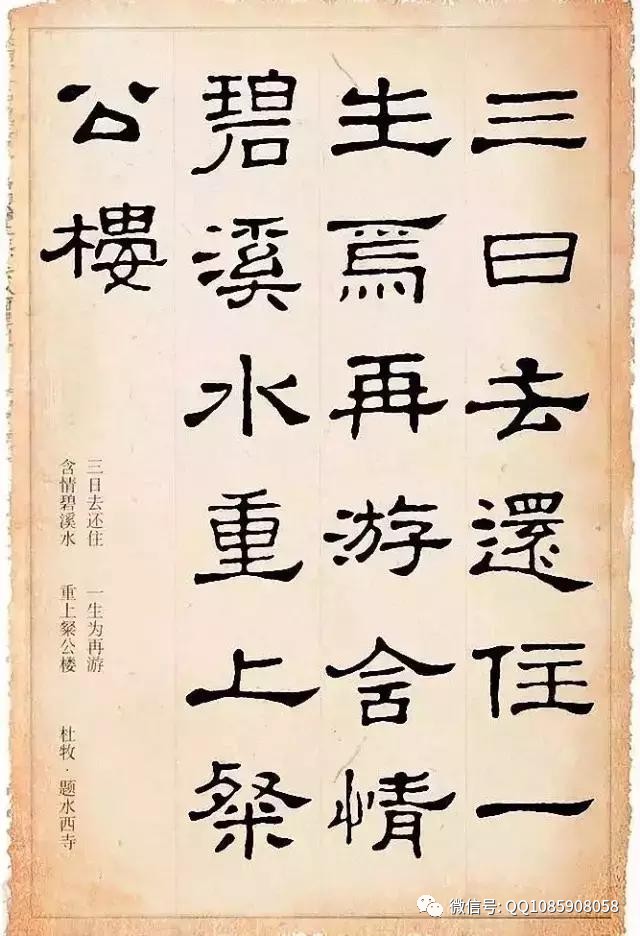 三日去還住一
生焉再游含情
碧溪水重上粲
公樓
三日去还住 一生为再游
含情碧溪水 重上粲公楼 杜牧·题水西寺
微信号: QQ1085908058